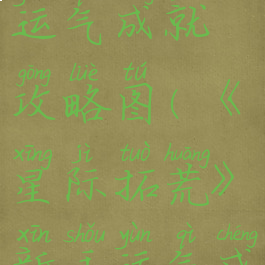 运气成就
gōng lüè tú
攻略图(《
xīng jì tuò huāng
星际拓荒》
xīn shǒu yùn qì chéng
新手运气成